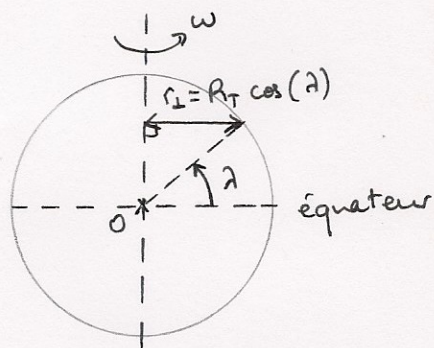 ω
r⊥ = R_T cos(λ)
λ
O
équateur